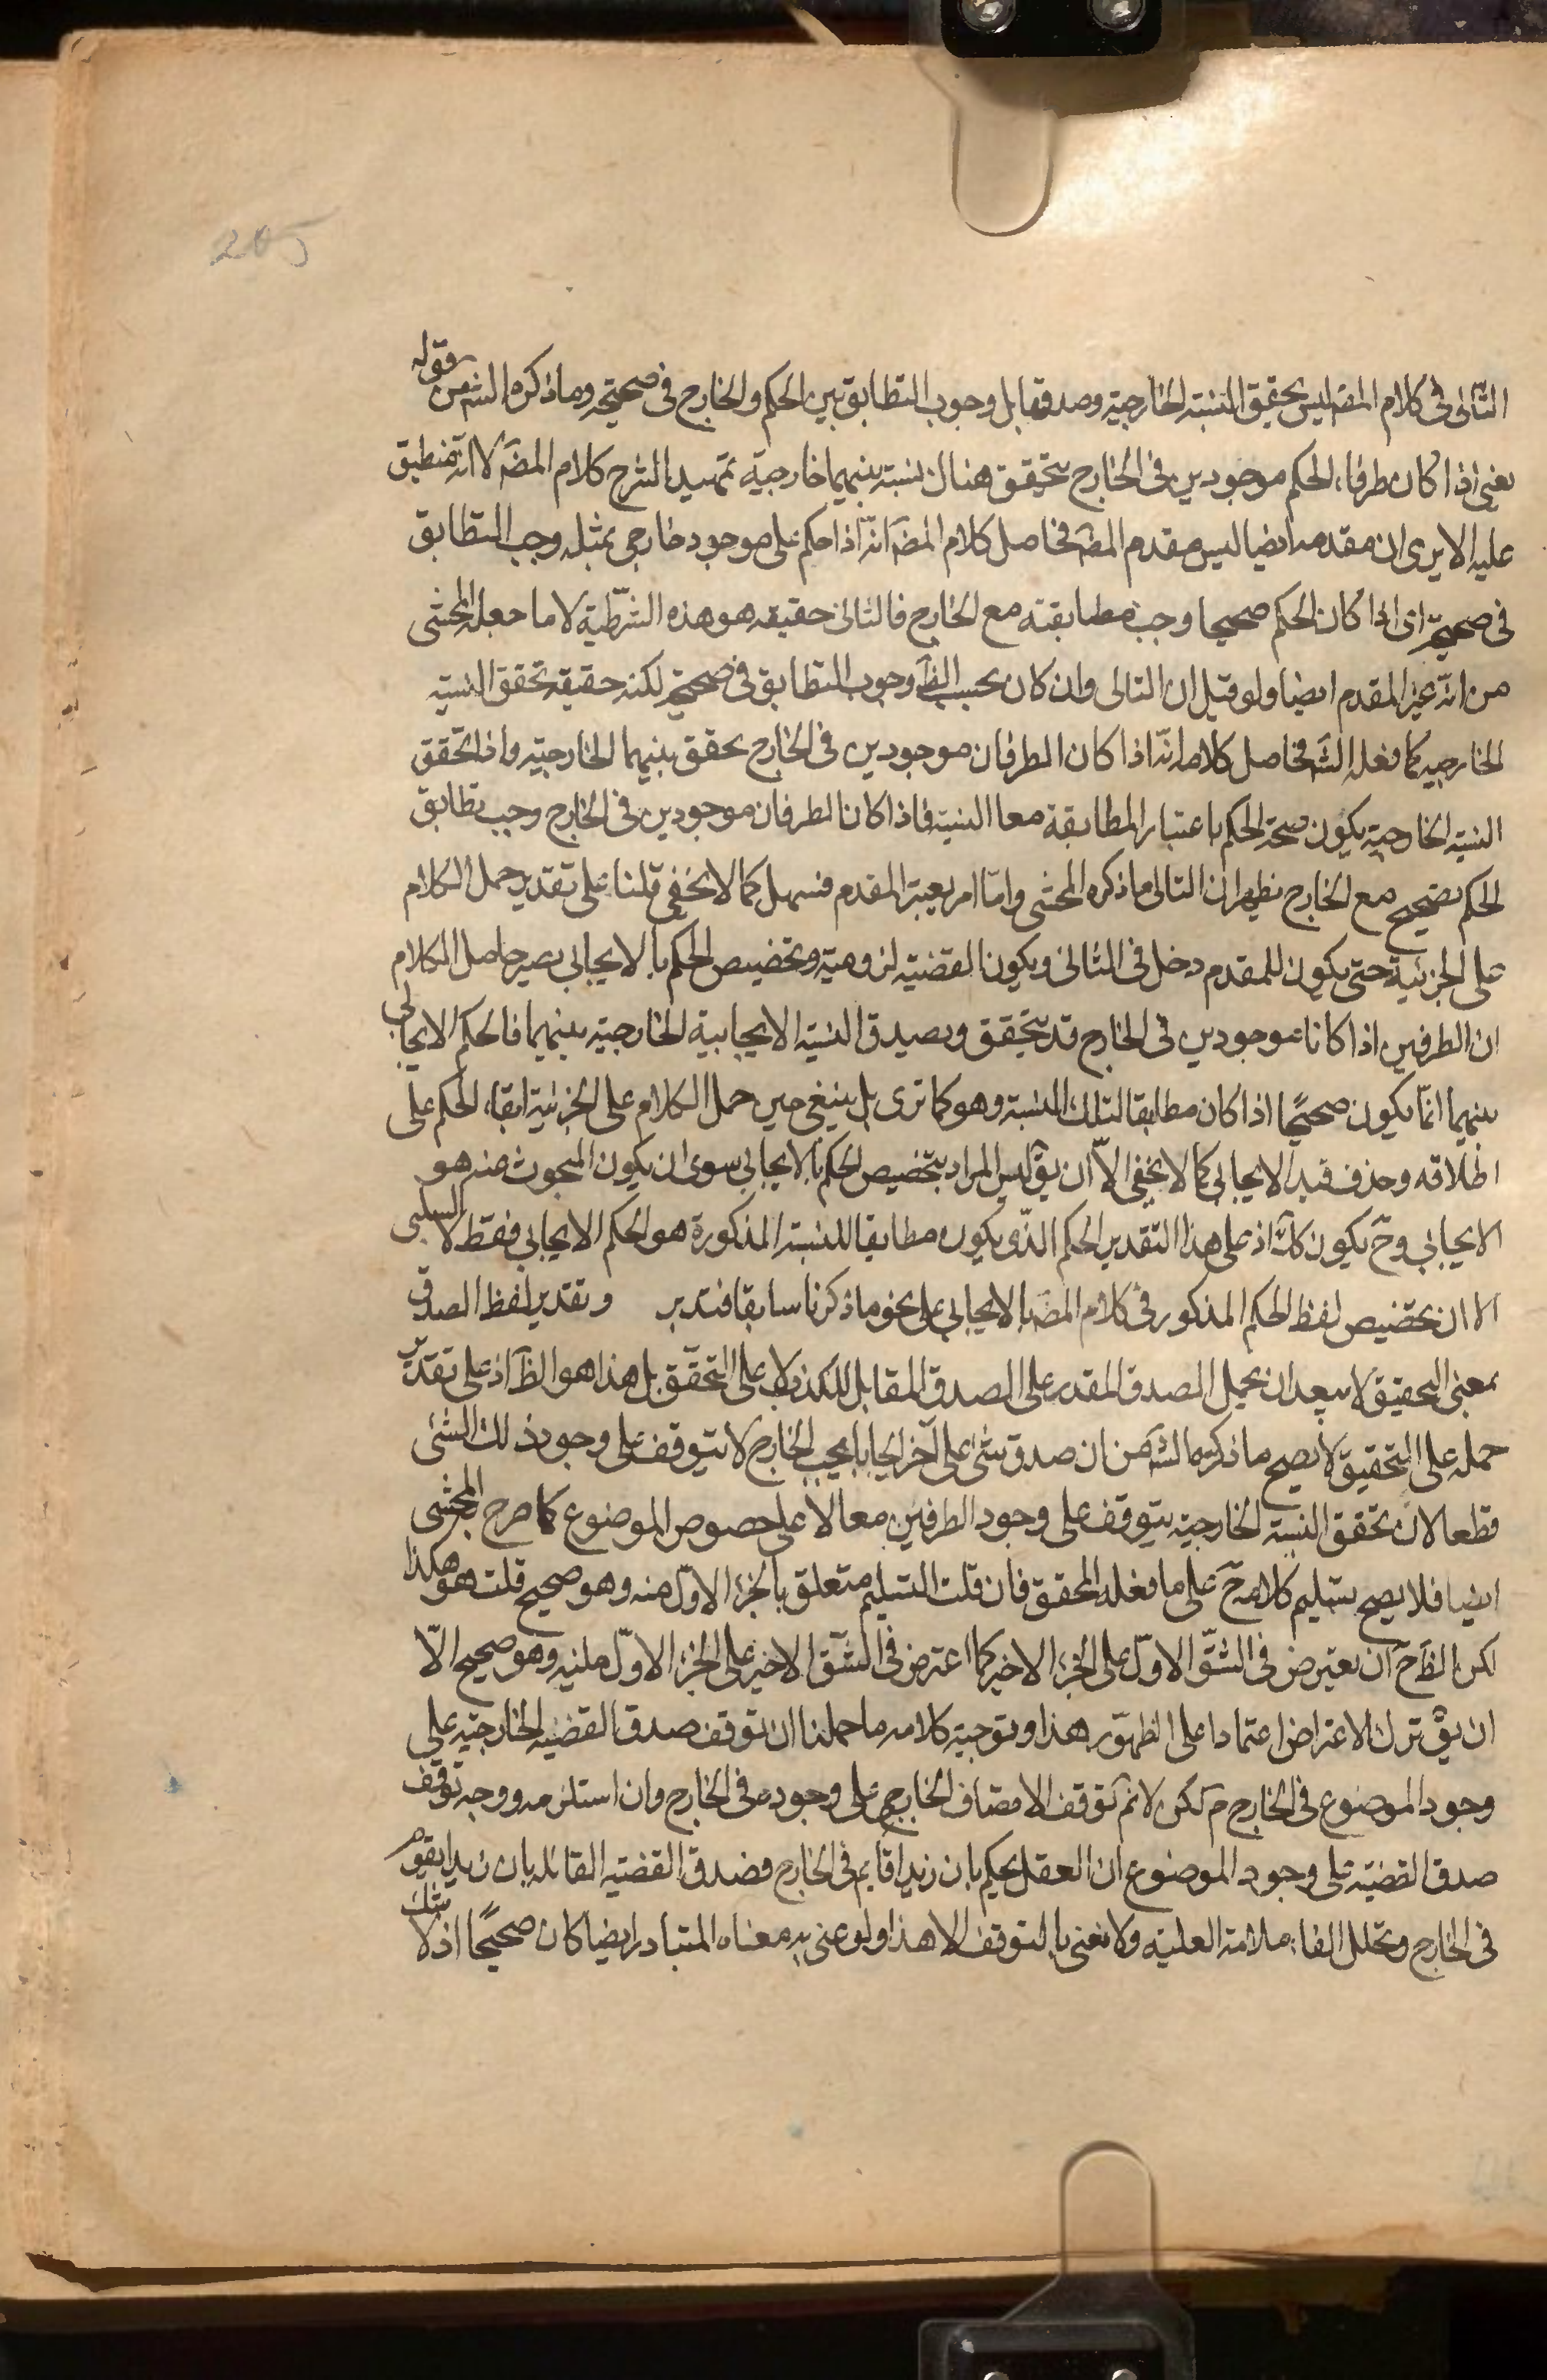 205
الثانى فى كلام المصَ ليس تحقيق النسبة الخارجية وصدقها بل وجوب التطابق بين الحكم والخارج فى صحته وما ذكره الشَ من قوله
يعنى اذا كان طرفا، الحكم موجودين فى الخارج يتحقق هناك نسبة بينهما خارجية تمهيد الشرح كلام المصَ لا انّه منطبق
عليه الا يرى ان مقدمه ايضا ليس مقدم المصَ فحاصل كلام المصَ انّه اذا حكم على موجود خارجى بمثله وجب التطابق
فى صحته اى اذا كان الحكم صحيحا وجب مطابقته مع الخارج فالتالى حقيقه هو هذه الشرّطية لا ما جعله المحشى
من انّه غير المقدم ايضا ولو قيل ان التالى وان كان بحسب الظَ وجوب التطابق فى صحته لكنه حقيقه تحقق النسبة
الخارجيه كما فعله الشَ فحاصل كلامه انّه اذا كان الطرفان موجودين فى الخارج تحقق بينهما الخارجيّه واذا تحّقق
النسبة الخارجيّة يكون صحة الحكم باعتبار المطابقة معا النسبة فاذا كانا لطرفان موجودين فى الخارج وجب تطابق
الحكم الصحيح مع الخارج يظهر ان التالى ما ذكره المحشى وامّا امر بعيتر المقدم فسهل كما لا يخفى قلنا على تقدير حمل الكلام
على الجزئية حتى يكون للمقدم دخل فى التالى ويكون القضيّه لزوميّة وتخصيص الحكم بالايجابى يصير حاصل الكلام
ان الطرفين اذا كانا موجودين فى الخارج قد يتحقق ويصدق النسبة الايجابية الخارجيّه بينهما فالحكم الايجابى
بينهما انّما يكون صحيحًا اذا كان مطابقا لتلك النسبة وهو كما ترى بل ينبغى حين حمل الكلام على الجزئية ابقاء الحكم على
اطلاقه وحذف قيد الايجابى كما لا يخفى الاّ ان يقَ ليس المراد بتخصيص الحكم بالايجابى سوى ان يكون المبحوث عنه هو
الايجابى وحَ يكون كلَ اذ على هذا التقدير الحكم الذّى يكون مطابقا للنسبة المذكورة هو الحكم الايجابى فقط لا السلبى
الا ان تخصيص لفظ الحكم المذكور فى كلام المصَ بالايجابى على نحو ما ذكرنا سابقا فتدبر وتقدير لفظ الصدق
بمعنى التحقيق لا يبعد ان يحمل الصدق المقدر على الصدق المقابل للكذب لا على التحقّق بل هذا هو الظَ اذ على تقدير
حمله على التحقيق لا يصح ما ذكره الشَ من ان صدق شئ على آخر ايجابا بحسب الخارج لا يتوقف على وجود ذلك الشئ
قطعا لان تحقق النسبة الخارجيّه يتوقف على وجود الطرفين معا لا على خصوص الموضوع كما صرح المحشى
ايضا فلا يصح تسليم كلامه حَ على ما فعله المحقق فان قلت التسليم متعلق بالجزء الاوّل منه وهو صحيح قلت هو هكذا
لكن الظَ حَ ان يعترض فى الشّق الاوّل على الجزء الاخير كما اعترض فى الشّق الاخير على الجزء الاوّل وهو صحيح الاّ
ان يقَ ترك الاعتراض اعتمادا على الظهوّر هذا وتوجيه كلامه ما حملنا ان توقف صدق القضيه الخارجيّه على
وجود الموضوع فى الخارج مَ لكن لا نمَ توقف الاتصاف الخارجى على وجوده فى الخارج وان استلزمه ووجه توقف
صدق القضيّة على وجود الموضوع ان العقل يحكم بان زيدا قايم فى الخارج فصدق القضيّه القائله بان زيدا يقوم
فى الخارج وتخلل الفاء علامة العليّه ولا نعنى بالتوقف الا هذا ولو عنى به معناه المتبادر ايضا كان صحيحًا اذ لا شك